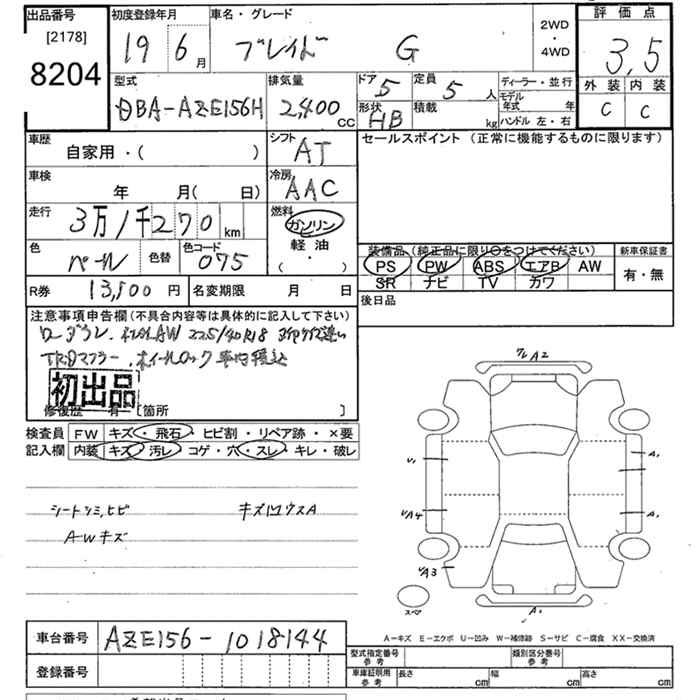 出品番号
[2178]
8204
初度登録年月
19 6月
車名・グレード
ブレイド G
2WD
・
4WD
評価点
3,5
外装 内装
C C
型式
DBA-AZE156H
排気量
2,400 cc
ドア 5
形状 HB
定員 5 人
積載 kg
ディーラー・並行
モデル年式 年
ハンドル 左・右
車歴
自家用・( )
シフト AT
セールスポイント (正常に機能するものに限ります)
車検
年 月( 日)
冷房 AAC
走行 3万1千270 km
燃料
ガソリン
軽油
・
( )
色 パール 色替 色コード 075
装備品(純正品に限り〇をつけてください)
PS PW ABS エアB AW
SR ナビ TV カワ
新車保証書
有・無
R券 13,500円 名変期限 月 日
後日品
注意事項申告欄(不具合内容等は具体的に記入して下さい)
ローダウン. 社外AW 225/40R18
TRDマフラー. ホイールロック 車内積込
初出品
修復歴 有 [箇所 ]
検査員
記入欄
FW キズ・飛石・ヒビ割・リペア跡・×要
内装 キズ・汚レ・コゲ・穴・スレ・キレ・破レ
シートシミ,ヒビ キズ凹ウスA
AWキズ
A2
A1
A1
UA4
A3
A1
スペア
A-キズ E-エクボ U-凹み W-補修跡 S-サビ C-腐食 XX-交換済
車台番号 AZE156-1018144
登録番号
型式指定番号 参考
類別区分番号 参考
車庫証明用 参考
長さ cm 幅 cm 高さ cm